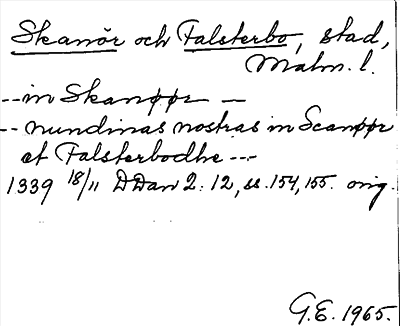 Skanör och Falsterbo, stad,
Malm. l.
--- in Skanøør —
--- nundinas nostras in Scanøør
et Falsterbodhe ---
1339 18/11 DDan 2: 12, ss. 154, 155. orig.
G.E. 1965.